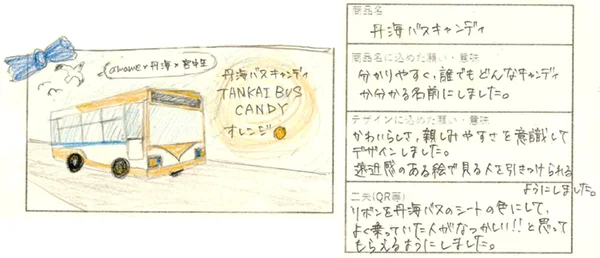 amowe×丹海×宮中生
丹海バスキャンディ
TANKAI BUS
CANDY
オレンジ
商品名
丹海バスキャンディ
商品名に込めた願い・意味
分かりやすく、誰でもどんなキャンディ
か分かる名前にしました。
デザインに込めた願い・意味
かわいらしさ、親しみやすさを意識して
デザインしました。
遠近感のある絵で見る人を引きつけられる
ようにしました。
工夫(QR等)
リボンを丹海バスのシートの色にして、
よく乗っていた人がなつかしい!!と思って
もらえるようにしました。